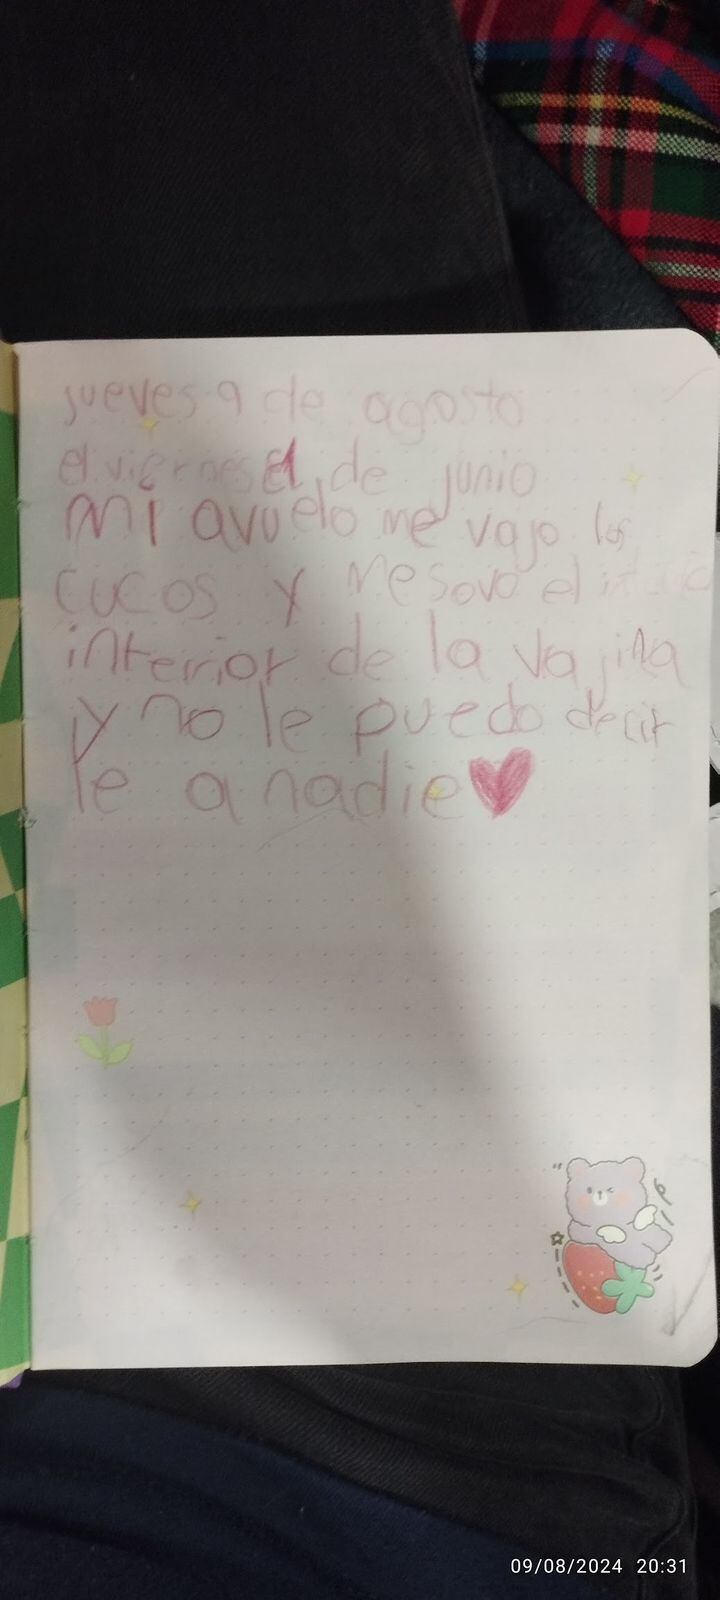 jueves 9 de agosto
el viernes de junio
mi avuelo me vajo los
cucos y me sovo el
interior de la vajina
y no le puedo decir
le a nadie
09/08/2024 20:31